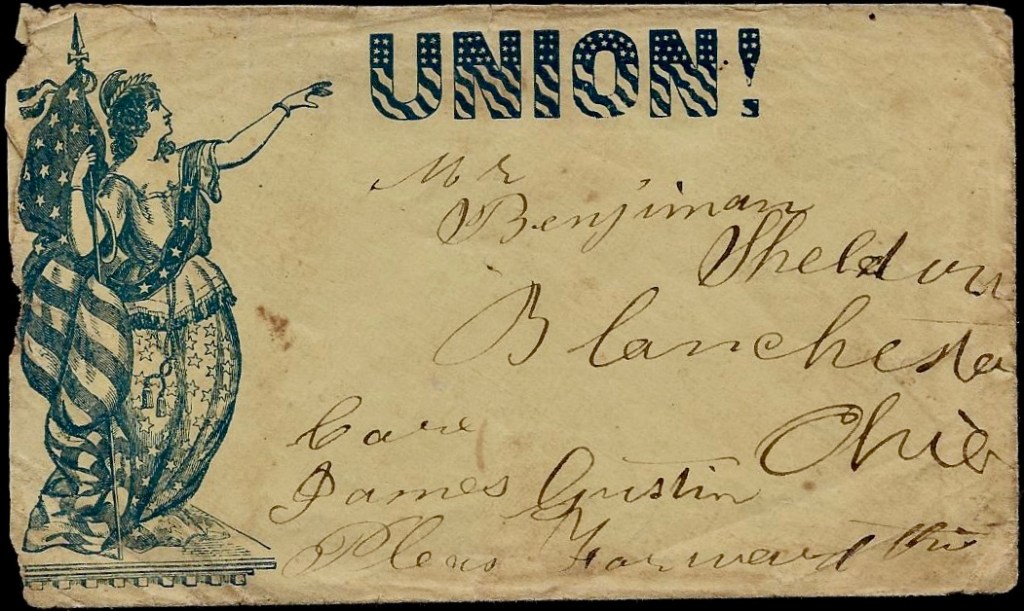 UNION!
Mr
Benjiman
Sheldon
Blanchester
Ohio
Care
James Gustin
Pleas Forward this